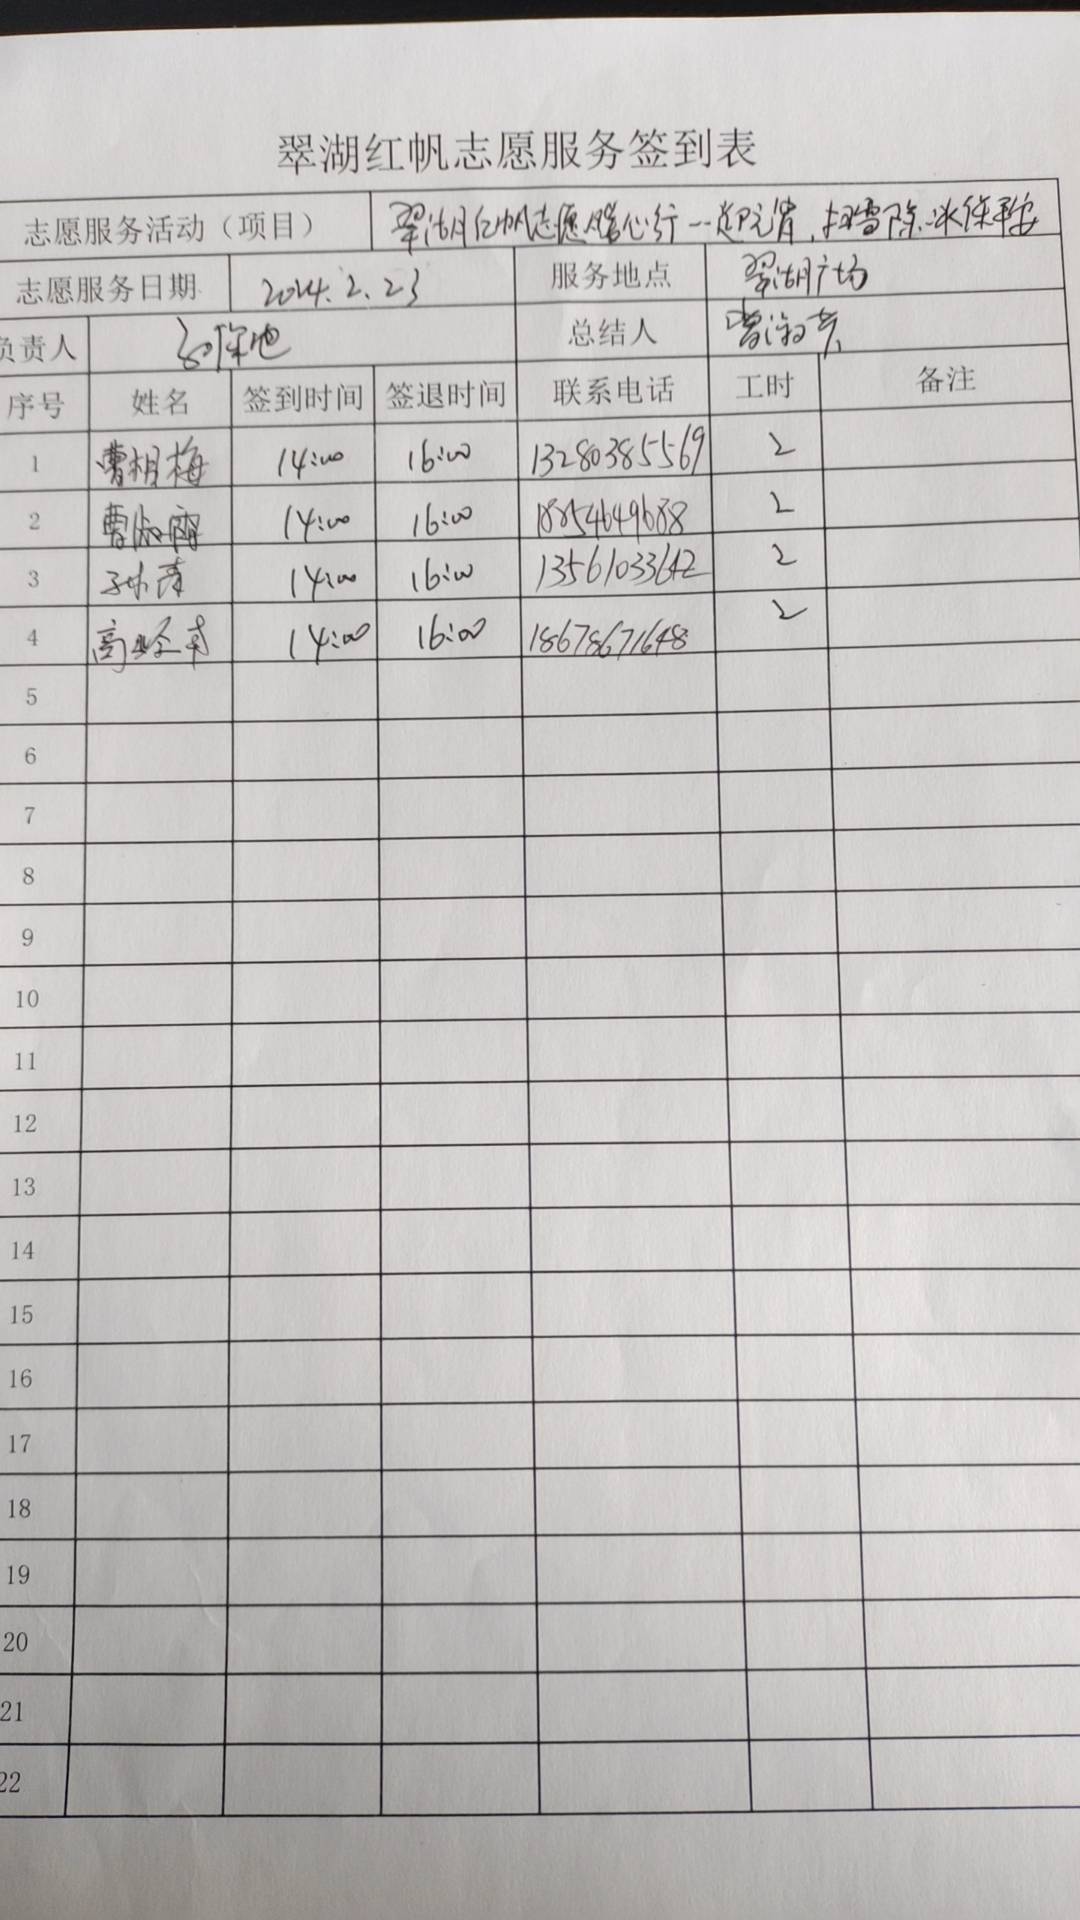 翠湖红帆志愿服务签到表
志愿服务活动（项目） 翠湖红帆志愿暖心行--迎元宵，扫雪除冰保平安
志愿服务日期 2024.2.23 服务地点 翠湖广场
负责人 总结人 曹淑芳
序号 姓名 签到时间 签退时间 联系电话 工时 备注
1 曹相梅 14:00 16:00 13280385569 2
2 曹淑霞 14:00 16:00 18854649688 2
3 孙青 14:00 16:00 13561033642 2
4 高 14:00 16:00 18678671648 2
5
6
7
8
9
10
11
12
13
14
15
16
17
18
19
20
21
22